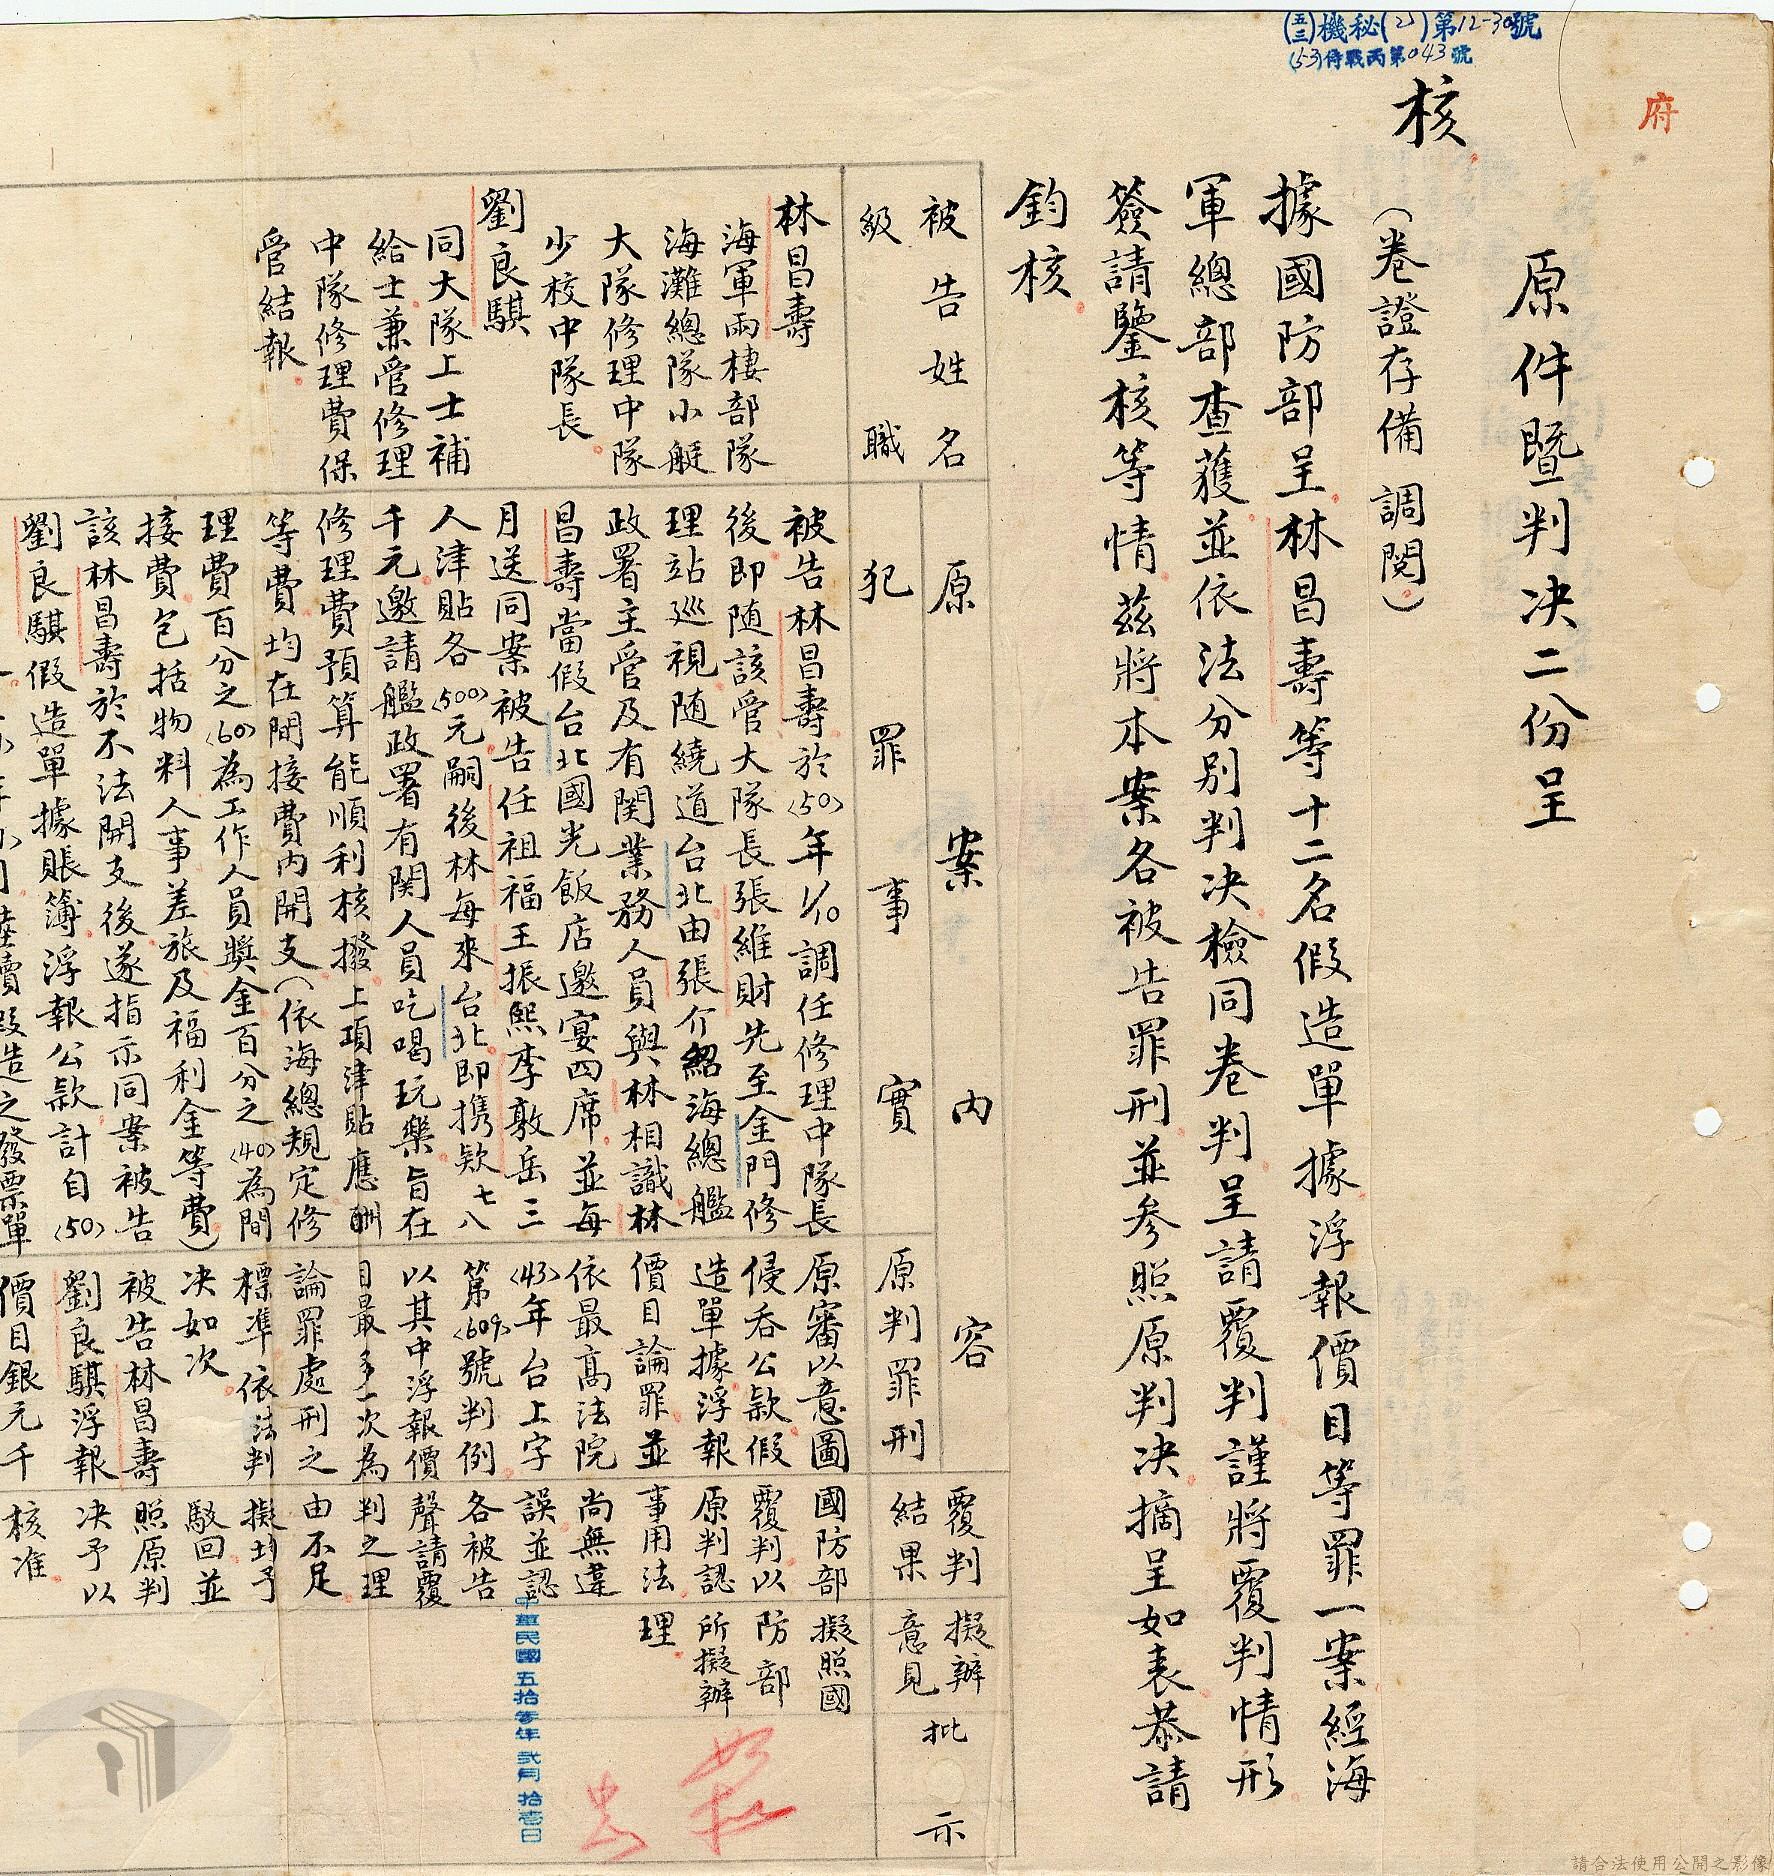 府
(五三)機秘(乙)第12-30號
(53)侍戰丙第043號
原件暨判决二份呈
核
(卷證存備調閱)
據國防部呈林昌壽等十二名假造單據浮報價目等罪一案經海
軍總部查獲並依法分別判决檢同卷判呈請覆判謹將覆判情形
簽請鑒核等情茲將本案各被告罪刑並参照原判决摘呈如表恭請
鈞核
被告姓名
級職
原案內容
犯罪事實
原判罪刑
覆判
結果
擬辦
意見
批示
林昌壽
海軍兩棲部隊
海灘總隊小艇
大隊修理中隊
少校中隊長
劉良騏
同大隊上士補
給士兼管修理
中隊修理費保
管結報
被告林昌壽於(50)年1/10調任修理中隊長
後即随該管大隊長張維財先至金門修
理站巡視随繞道台北由張介紹海總艦
政署主管及有関業務人員與林相識林
昌壽當假台北國光飯店邀宴四席並每
月送同案被告任祖福王振熙李敦岳三
人津貼各(500)元嗣後林每來台北即携款七八
千元邀請艦政署有関人員吃喝玩樂旨在
修理費預算能順利核撥上項津貼應酬
等費均在間接費內開支(依海總規定修
理費百分之(60)為工作人員獎金百分之(40)為間
接費包括物料人事差旅及福利金等費)
該林昌壽於不法開支後遂指示同案被告
劉良騏假造單據賬簿浮報公款計自(50)
陸續假造之發票單
原審以意圖
侵吞公款假
造單據浮報
價目論罪並
依最高法院
(43)年台上字
第(609)號判例
以其中浮報價
目最多一次為
論罪處刑之
標準依法判
决如次
被告林昌壽
劉良騏浮報
價目銀元千
國防部
覆判以
原判認
事用法
尚無違
誤並認
各被告
聲請覆
判之理
由不足
擬均予
駁回並
照原判
决予以
核准
擬照國
防部
所擬辦
理
如擬
中華民國五拾叁年貳月拾壹日
請合法使用公開之影像